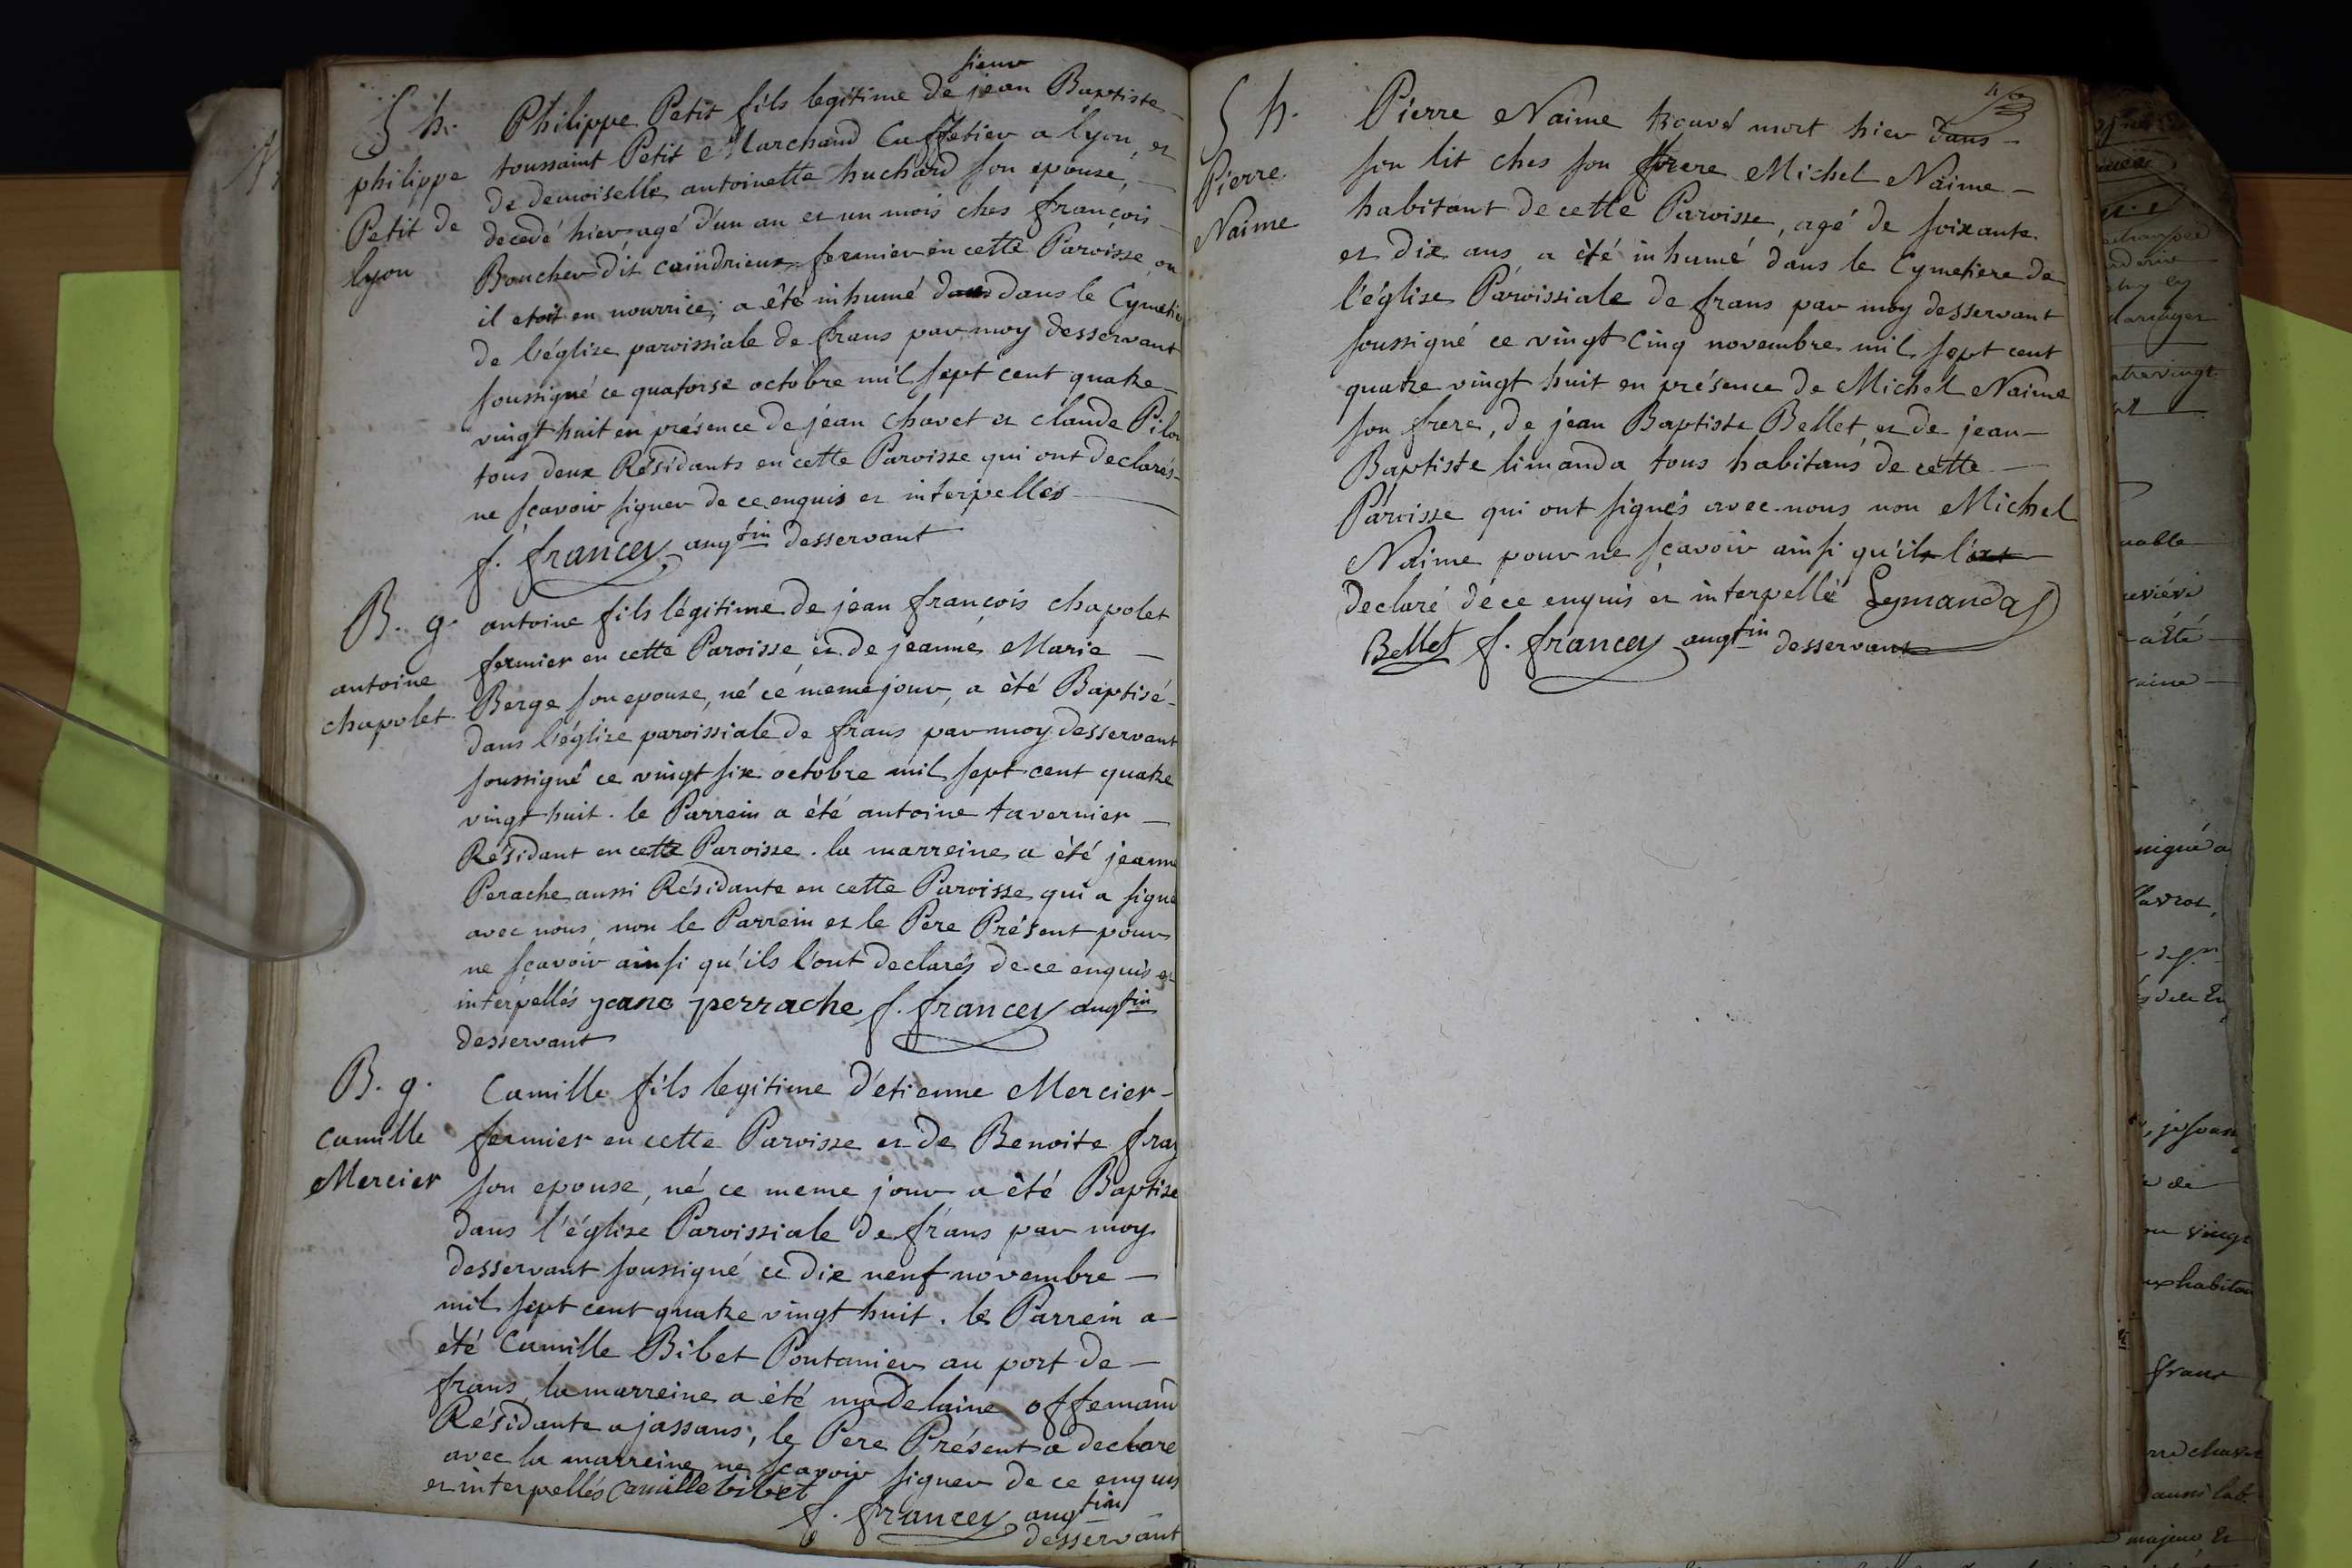 S h.
philippe
Petit de
lyon
sieur
Philippe Petit fils legitime de jean Baptiste
toussaint Petit Marchand Caffetier a lyon, et
de demoiselle antoinette huchard son epouse, —
decedé hier agé d'un an et un mois ches françois —
Boucher dit caindrieux fermier en cette Paroisse, ou
il etoit en nourrice, a êté inhumé dans dans le Cymetier
de l'église paroissiale de frans par moy desservant
soussigné ce quatorse octobre mil sept cent quatre
vingt huit en présence de jean chavet et claude Pilon
tous deux Résidants en cette Paroisse qui ont declarés
ne sçavoir signer de ce enquis et interpellés
f. francey aug tin desservant
B. g.
antoine
chapolet
antoine fils légitime de jean françois chapolet
fermier en cette Paroisse et de jeanne Marie —
Berge son epouse, né ce meme jour, a èté Baptisé
dans l'église paroissiale de frans par moy desservant
soussigné ce vingt six octobre mil sept cent quatre
vingt huit. le Parrein a été antoine tavernier —
Résidant en cette Paroisse. la marreine a èté jeanne
Perache aussi Résidante en cette Paroisse qui a signé
avec nous, non le Parrein et le Pere Présent pour
ne sçavoir ainsi qu'ils l'ont declarés de ce enquis et
interpellés jeane perrache f. francey aug tin
desservant
B. g.
Camille
Mercier
Camille fils legitime d'etienne Mercier —
fermier en cette Paroisse et de Benoite fray
son epouse, né ce meme jour a èté Baptisé
dans l'église Paroissiale de frans par moy
desservant soussigné ce dix neuf novembre —
mil sept cent quatre vingt huit. le Parrein a
été Camille Bibet Pontanier au port de —
frans, la marreine a èté madelaine offemand
Résidante a jassans, le Pere Présent a declaré
avec la marreine ne sçavoir signer de ce enquis
et interpellés Camille bibet
f. francey aug tin
desservant
S h.
Pierre
Naime
Pierre Naime trouvé mort hier dans —
son lit ches son frere Michel Naime —
habitant de cette Paroisse, agé de soixante
et dix ans a èté inhumé dans le Cymetiere de
l'église Paroissiale de frans par moy desservant
soussigné ce vingt cinq novembre mil sept cent
quatre vingt huit en présence de Michel Naime
son frere, de jean Baptiste Bellet et de jean —
Baptiste limanda tous habitans de cette —
Paroisse qui ont signés avec nous non Michel
Naime pour ne sçavoir ainsi qu'il l'a
declaré de ce enquis et interpellé Lymanda
Bellet f. francey aug tin desservant